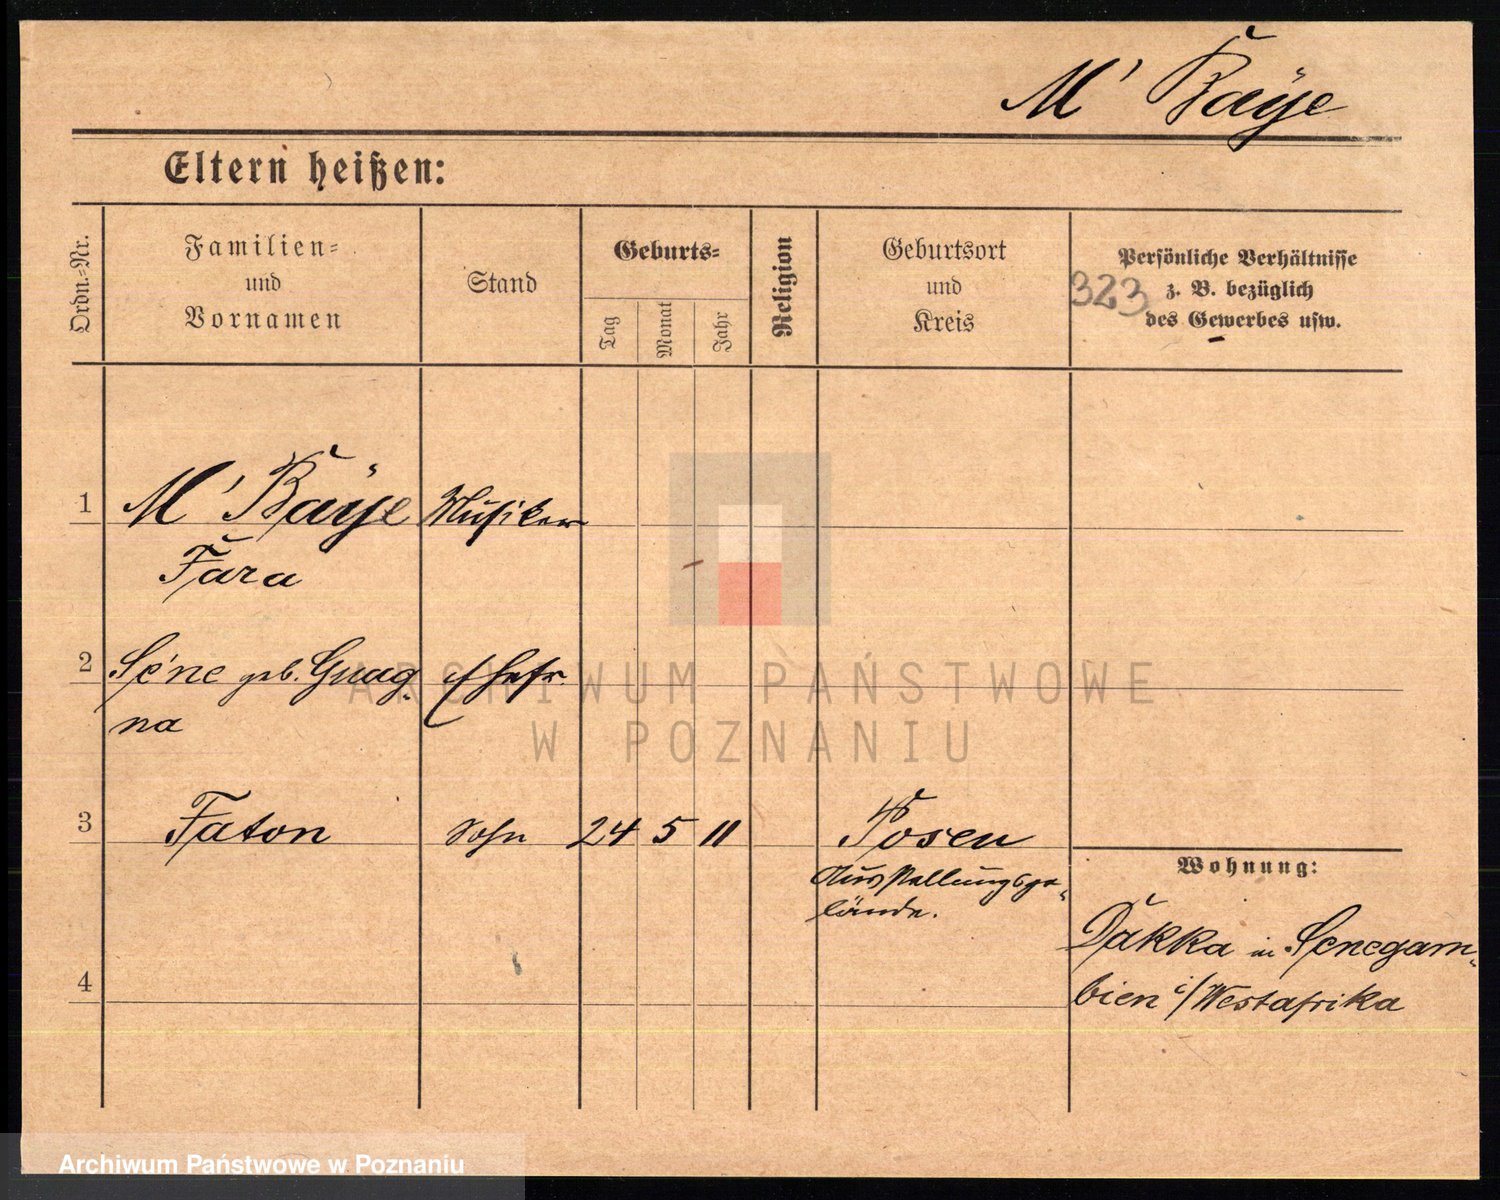 M' Bäÿe
Eltern heißen:
Ordn.-Nr.
Familien-
und
Vornamen
Stand
Geburts-
Tag
Monat
Jahr
Religion
Geburtsort
und
Kreis
Persönliche Verhältnisse
z. B. bezüglich
des Gewerbes usw.
323
1 M' Bäÿe Musiker
Fara
2 Sé'ne geb. Guag- Ehefr.
na
3 Faton Sohn 24 5 11 Posen
Ausstellungsge-
lände.
Wohnung:
Dakka in Senegam-
bien i/Westafrika
4
ARCHIWUM PAŃSTWOWE
W POZNANIU
Archiwum Państwowe w Poznaniu